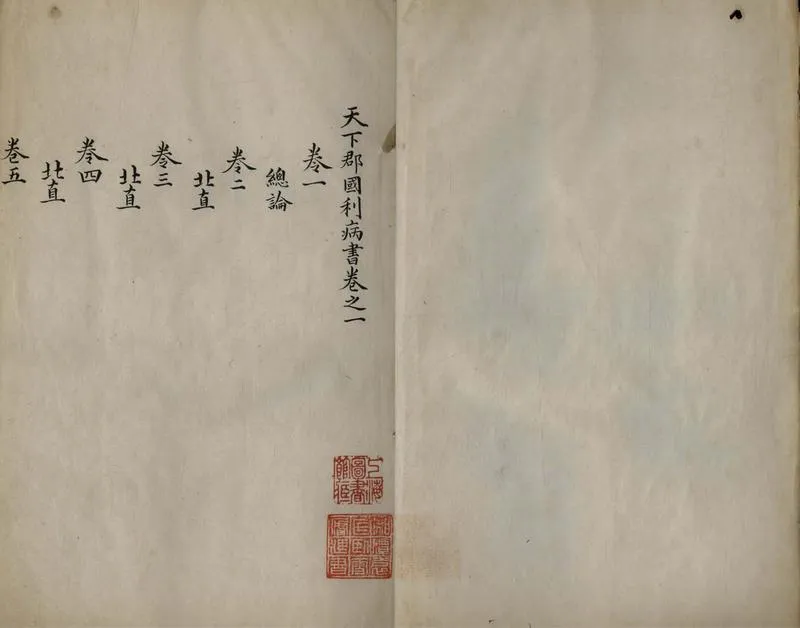 天下郡國利病書卷之一
卷一
總論
卷二
北直
卷三
北直
卷四
北直
卷五
上海
圖書
館藏